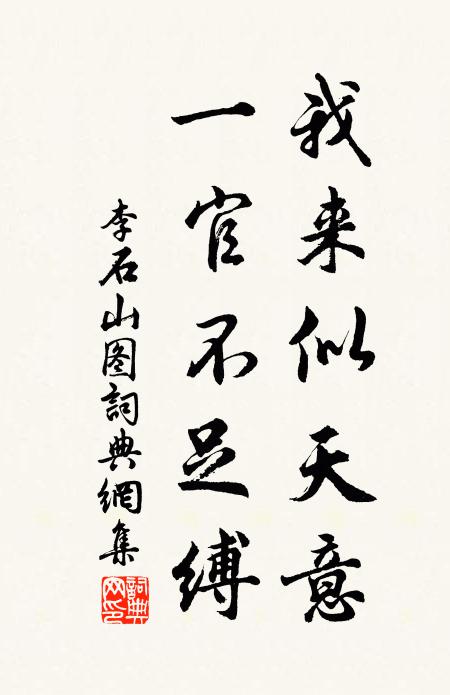 我来似天意
一官不足缚
李石山图詞典網集
詞典网印